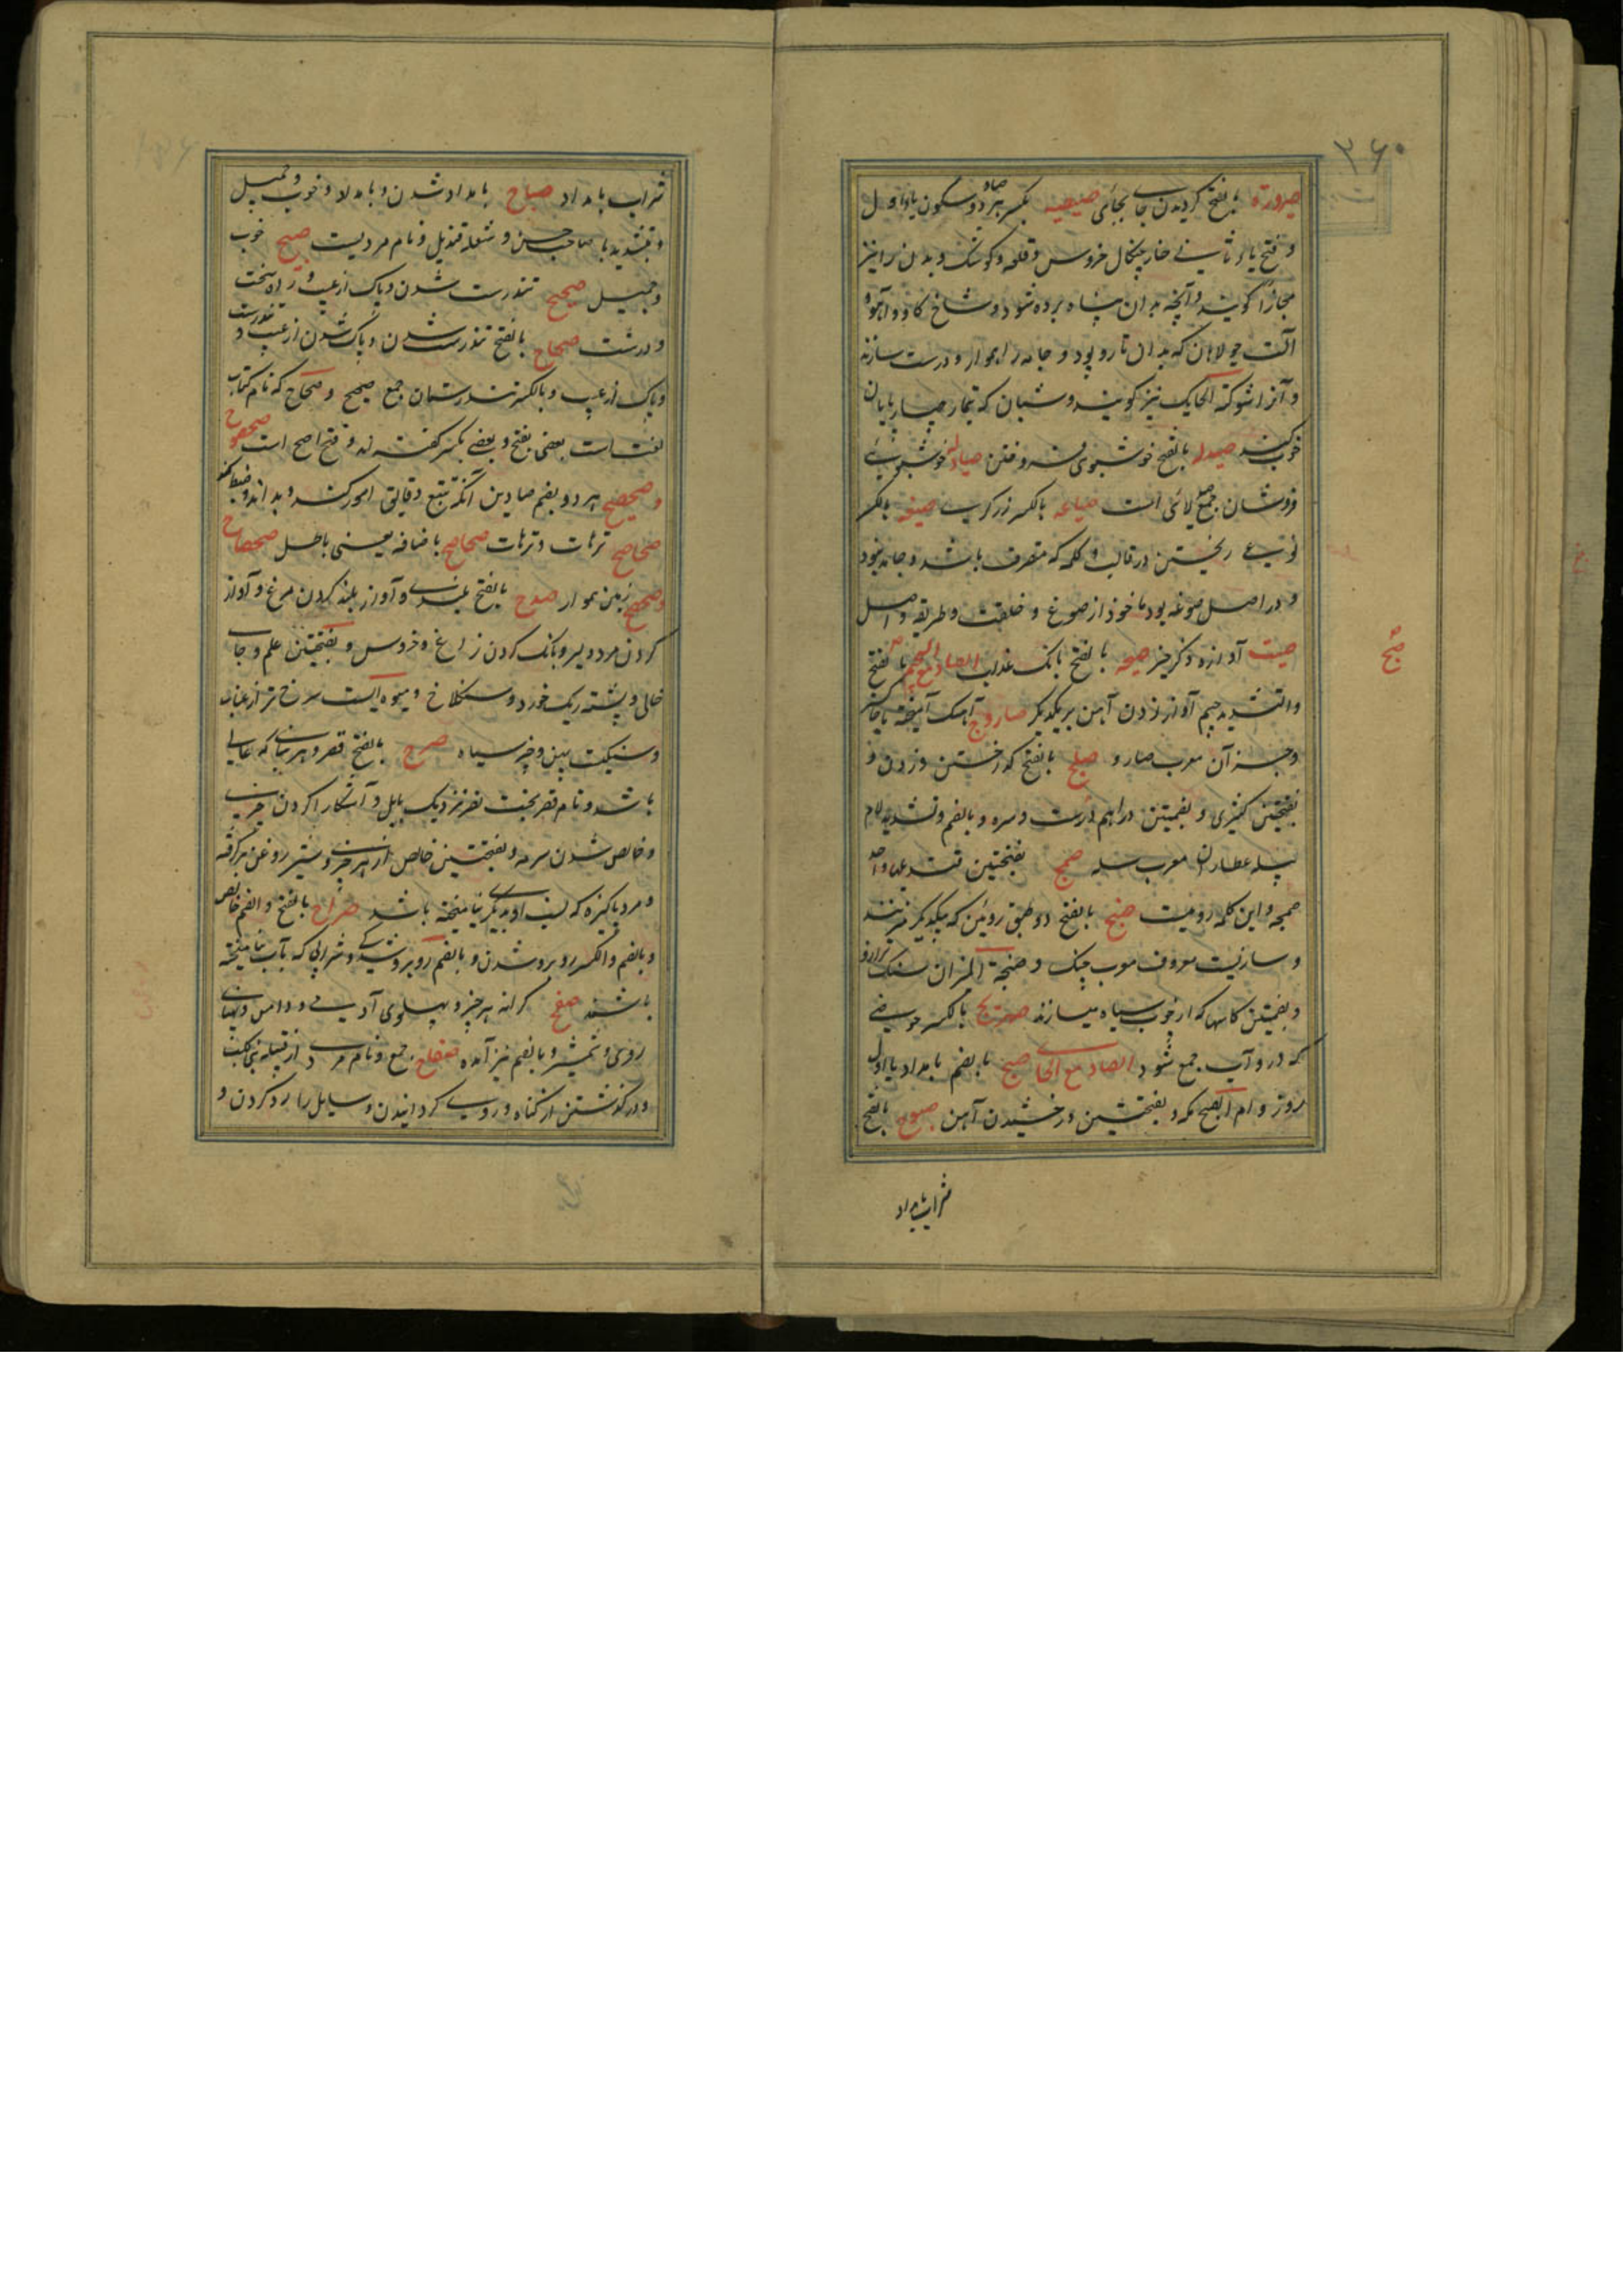 ۳۶۰
صیرورة بالفتح کردیدن جای بجائی صیصیه بکسر هر دو صاد و سکون یاء اول
و فتح یاء ثانی خار چنکال خروس و قلعه و کوشک و بدن را نیز
مجازا کویند و آنچه بدان پناه برده شود و شاخ کاو و آهو و
آلت جولاهان که بدان تار و پود و جامه را هموار و درست سازند
و آنرا شوکة الحایک نیز کویند و شبان که تیمار چهارپایان
خوب کند صیدله بالفتح خوشبوی فروختن صیادله خوشبوی
فروشان جمع صیدلانی است صیاغه بالکسر زرکری صیغه بالکسر
نوعی ریختن در قالب و کلمه که متصرف باشد و جامد نبود
و در اصل صوغه بود ماخوذ از صوغ و خلقت و طریقه و اصل
صیت آوازه و ذکر خیر صیحه بالفتح بانک عذاب الصاد مع الجیم صج بالفتح
صج
والتشدید جیم آواز زدن آهن بر یکدیکر صاروج آهک آمیخته با خاکستر
و جز آن معرب صارو صلج بالفتح کداختن و زدن و
بفتحتین کنیزی و بضمتین دراهم درست و سره و بالضم و تشدید لام
پیله عطاران معرب سله صمج بفتحتین قندیلها واحد
صمجه و این کلمه رومیست صنج بالفتح دو طبق روئین که بیکدیکر میزنند
و سازیست معروف معرب چنک و صنجة المیزان سنک ترازو
و بضمتین کاسها که از چوب سیاه میسازند صهریج بالکسر حوضی
که در و آب جمع شود الصاد مع الحا صبح بالضم بامداد یا اول
روز و ام الصبح مکه و بفتحتین درخشیدن آهن صبوح بالفتح
شراب بامداد
شراب بامداد صباح بامداد شدن و بامداد و خوب و جمیل
و بتشدید با صاحب حسن و شعله قندیل و نام مردیست صبیح خوب
و جمیل صحیح تندرست شدن و پاک از عیب و راه سخت
و درشت صحاح بالفتح تندرست شدن و پاک شدن از عیب و تندرست
و پاک از عیب و بالکسر تندرستان جمع صحیح و صحاح که نام کتاب
لغت است بعضی بفتح و بعضی بکسر کفته اند و فتح اصح است صحصوح
و صحصح هر دو بضم صادین آنکه تتبع دقایق امور کند و بداند و ضبط کند
صحاصح ترهات و ترهات صحاصح باضافه یعنی باطل صحصاح
و صحصح زمین هموار صدح بالفتح بلندی و آواز بلند کردن مرغ و آواز
کردن مرد دلیر و بانک کردن زاغ و خروس و بفتحتین علم و جای
خالی و پشته ریک خورد و سنکلاخ و میوه ایست سرخ تر از عناب
و سنکیست پهن و چیز سیاه صرح بالفتح قصر و هر بنائی که عالی
باشد و نام قصر بخت نصر نزدیک بابل و آشکارا کردن چیزی
و خالص شدن سرمه و بفتحتین خالص از هر چیزی و شیر روغن برکرفته
و مرد پاکیزه که نسب او بدیکری نیامیخته باشد صراح بالفتح و الضم خالص
و بالضم و الکسر روبرو شدن و بالضم روبرو شدکی و شرابی که بآب نیامیخته
باشند صفح کرانه هر چیز و پهلوی آدمی و دامن و پهنای
روی و شمشیر و بالضم نیز آمده صفاح جمع و نام مردی از قبیله بنی کلب
و درکذشتن از کناه و روی کردانیدن و سایل را رد کردن و